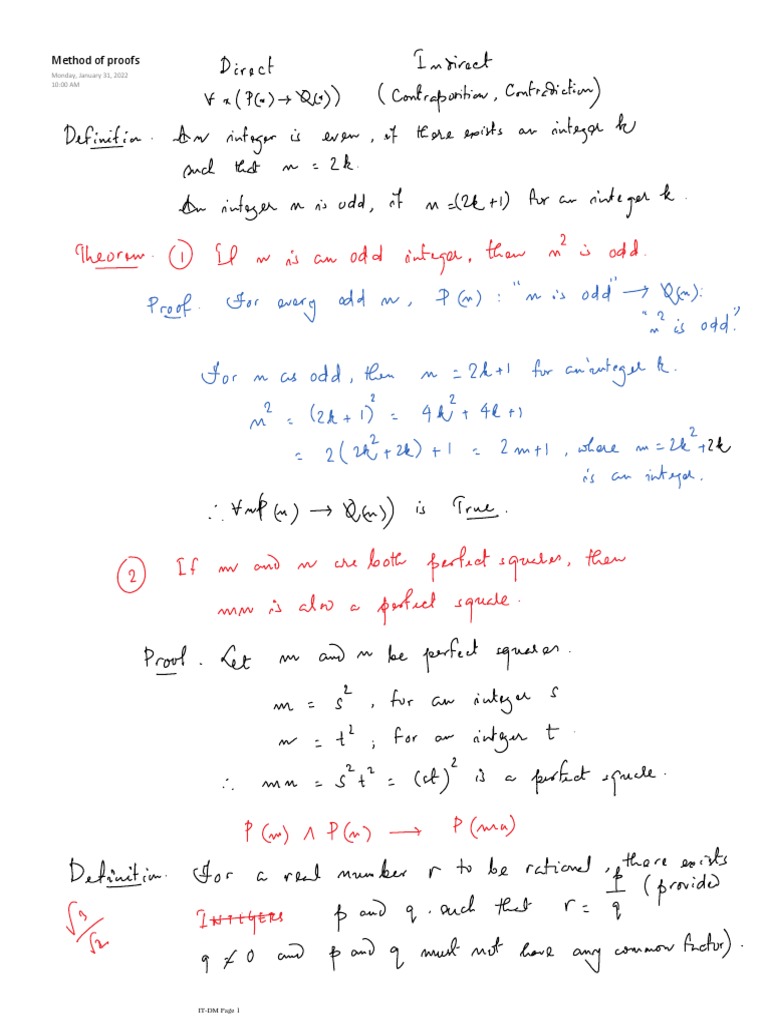 Method of proofs
Monday, January 31, 2022
10:00 AM
Direct Indirect
∀x(P(x) → Q(x)) (Contraposition, Contradiction)
Definition. An integer is even, if there exists an integer k
such that n = 2k.
An integer n is odd, if n=(2k+1) for an integer k.
Theorem. ① If n is an odd integer, then n² is odd.
Proof. For every odd n, P(n) : "n is odd" → Q(n):
"n² is odd."
For n as odd, then n = 2k+1 for an integer k.
n² = (2k+1)² = 4k² + 4k + 1
= 2(2k²+2k) + 1 = 2m+1, where m = 2k²+2k
is an integer.
∴ ∀n P(n) → Q(n)) is True.
② If m and n are both perfect squares, then
mn is also a perfect square.
Proof. Let m and n be perfect squares.
m = s², for an integer s
n = t², for an integer t.
∴ mn = s²t² = (st)² is a perfect square.
P(m) ∧ P(n) → P(mn)
Definition. For a real number r to be rational, there exists
√9/√2 Integers p and q such that r = p/q (provided
q ≠ 0 and p and q must not have any common factor).
IT-DM Page 1